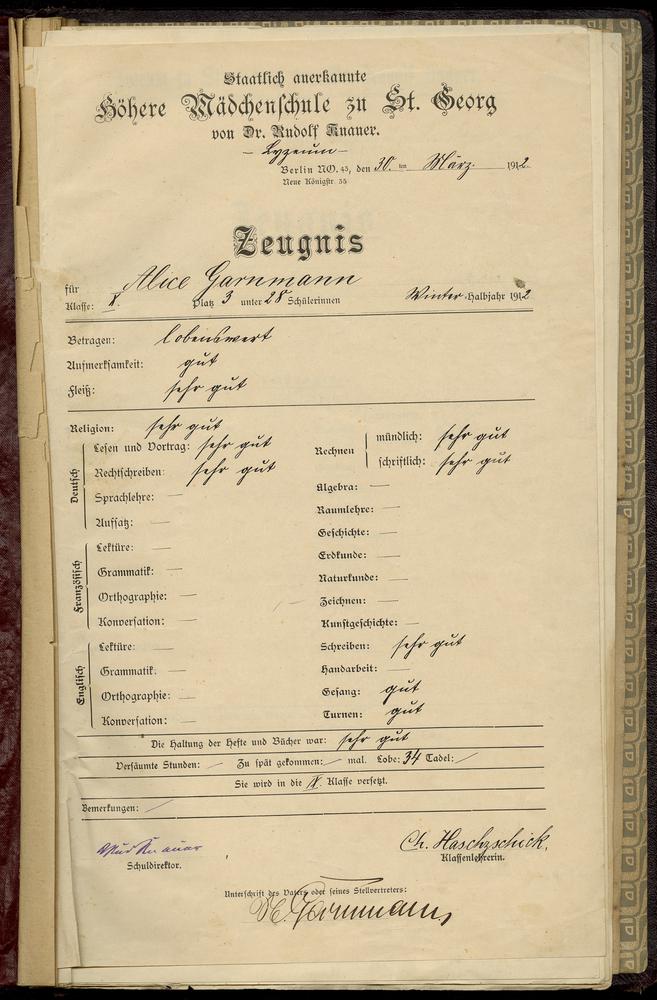 Staatlich anerkannte
Höhere Mädchenschule zu St. Georg
von Dr. Rudolf Knauer.
– Lyzeum –
Berlin NO. 43, den 30. ten März. 1912.
Neue Königstr. 35
Zeugnis
für Alice Garnmann
Klasse: X. Platz 3 unter 28 Schülerinnen Winter-Halbjahr 1912
Betragen: lobenswert
Aufmerksamkeit: gut
Fleiß: sehr gut
Religion: sehr gut
Deutsch
Lesen und Vortrag: sehr gut
Rechtschreiben: sehr gut
Sprachlehre: —
Aufsatz: —
Französisch
Lektüre: —
Grammatik: —
Orthographie: —
Konversation: —
Englisch
Lektüre: —
Grammatik: —
Orthographie: —
Konversation: —
Rechnen
mündlich: sehr gut
schriftlich: sehr gut
Algebra: —
Raumlehre: —
Geschichte: —
Erdkunde: —
Naturkunde: —
Zeichnen: —
Kunstgeschichte: —
Schreiben: sehr gut
Handarbeit: —
Gesang: gut
Turnen: gut
Die Haltung der Hefte und Bücher war: sehr gut
Versäumte Stunden: / Zu spät gekommen: / mal. Lobe: 34 Tadel: /
Sie wird in die IX. Klasse versetzt.
Bemerkungen: /
Knauer
Schuldirektor.
Ch. Haschzschick.
Klassenlehrerin.
Unterschrift des Vaters oder seines Stellvertreters:
Garnmann